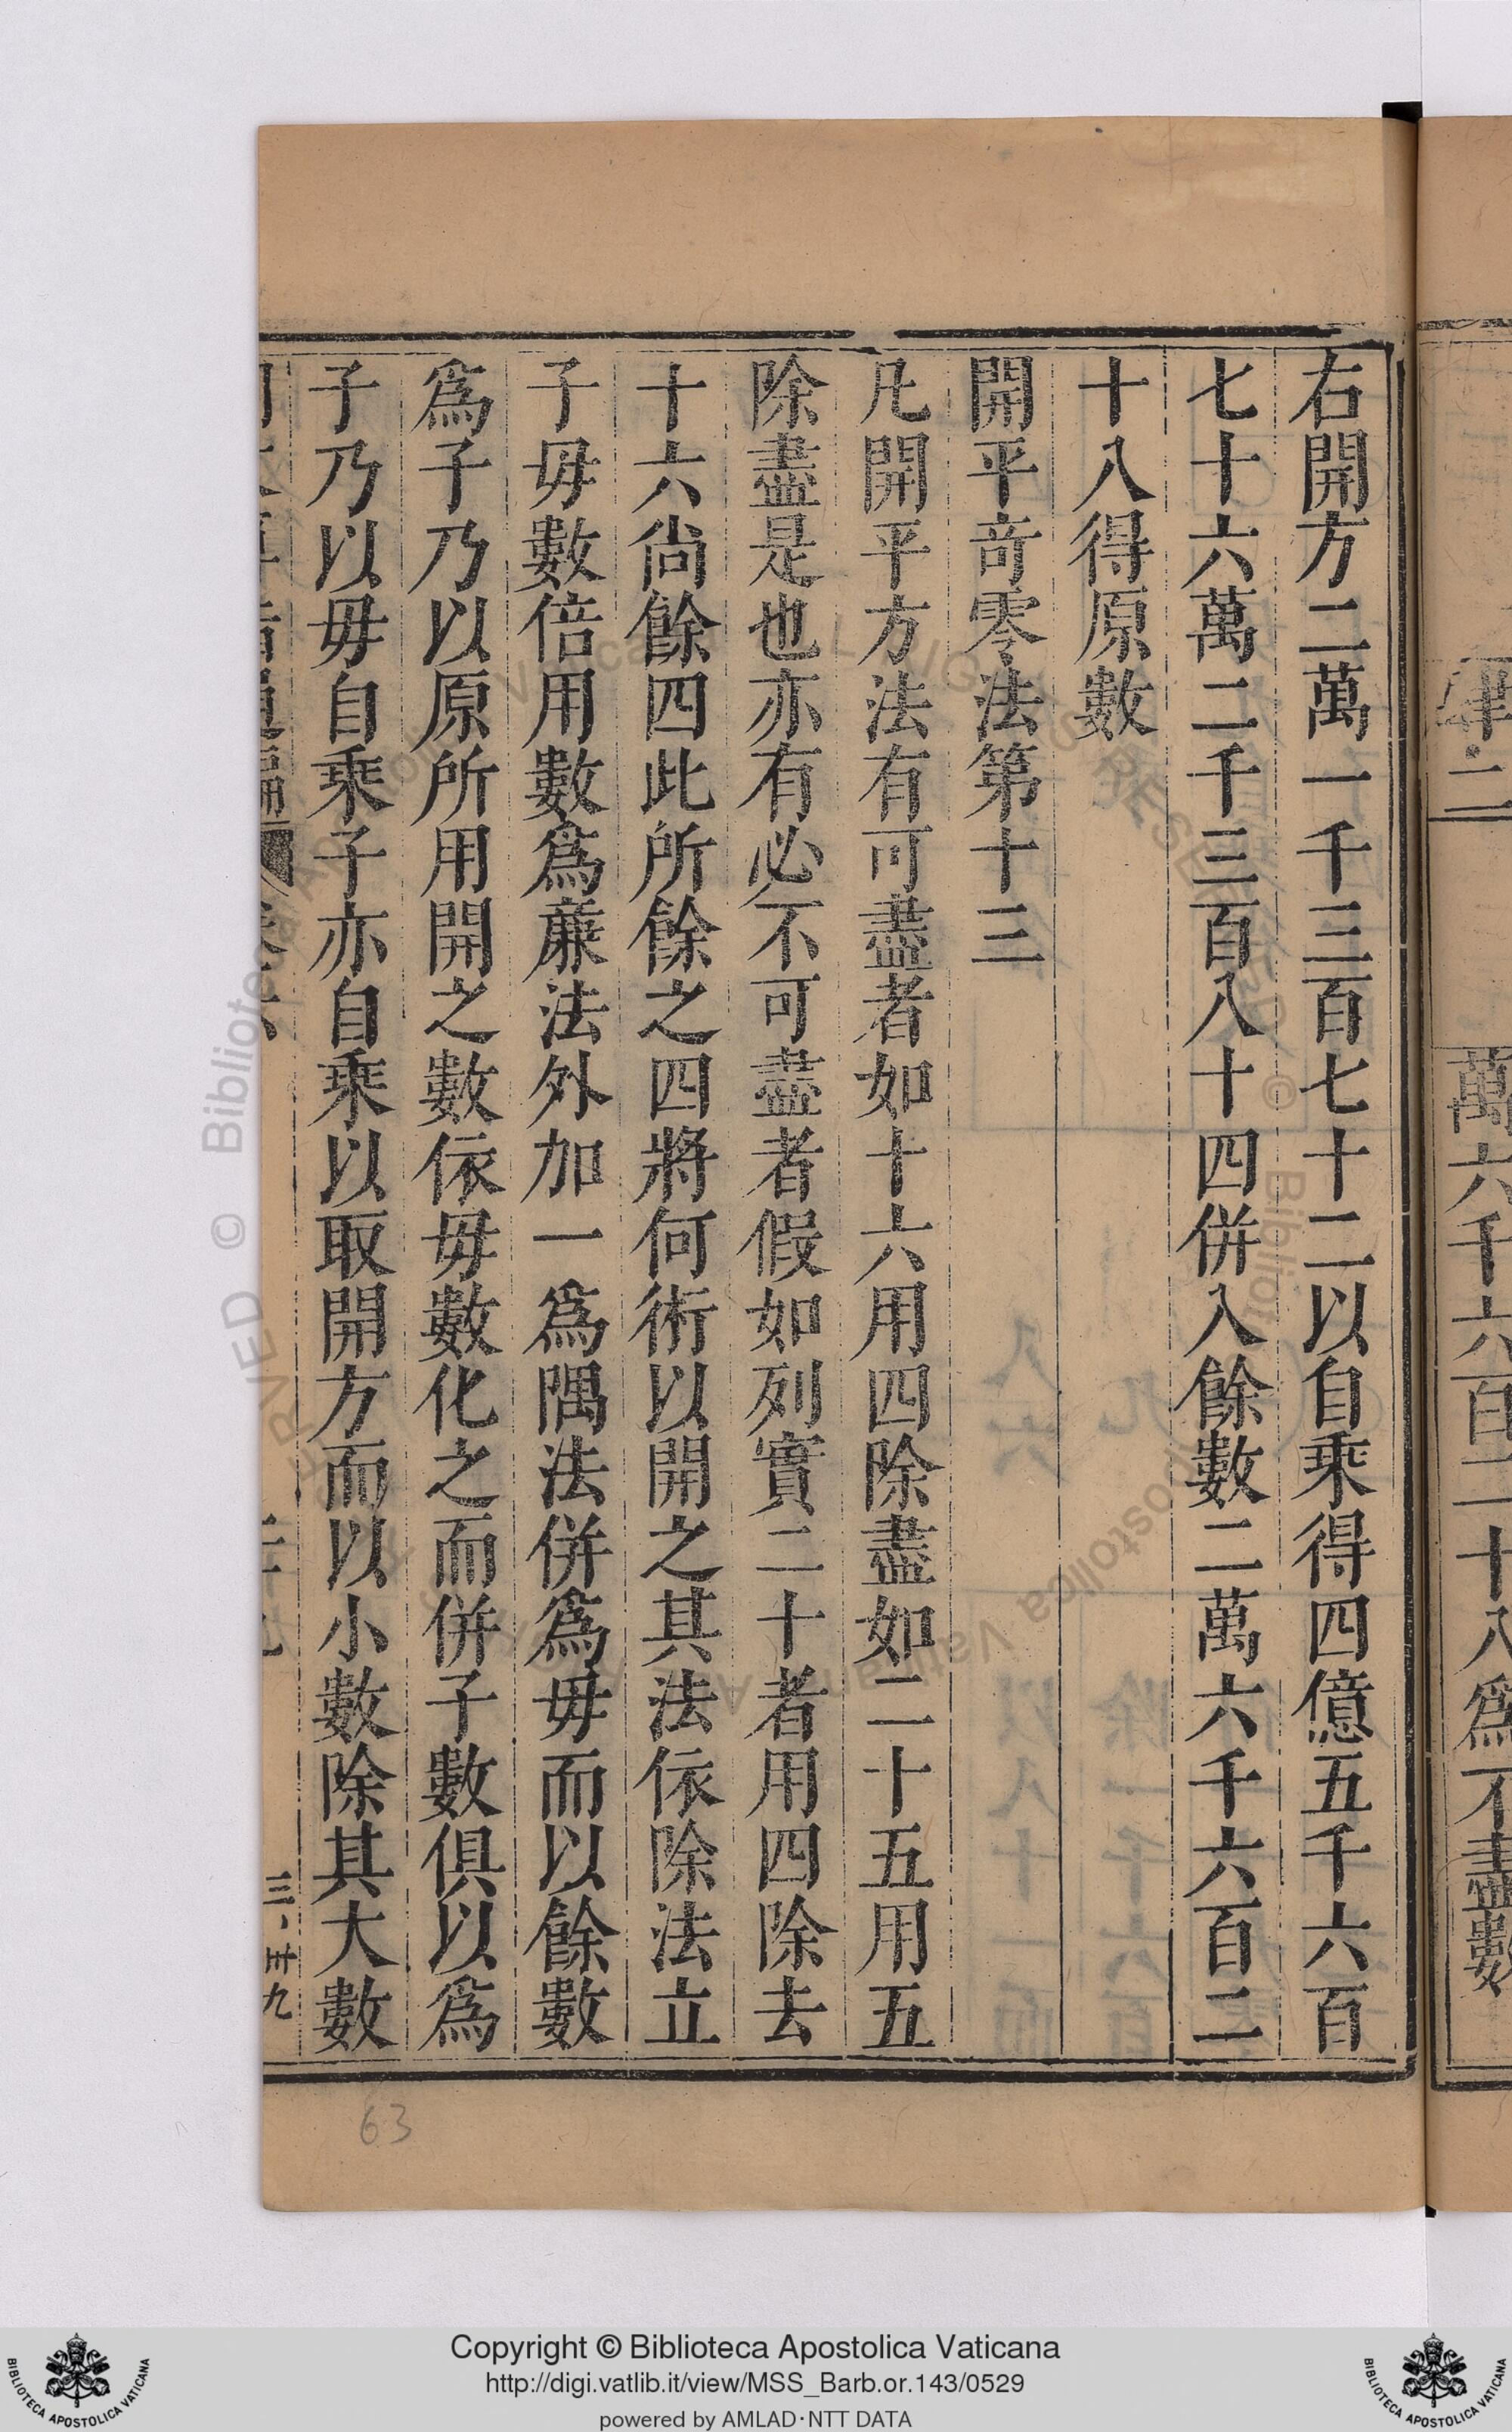 右開方二萬一千三百七十二以自乘得四億五千六百
七十六萬二千三百八十四併入餘數二萬六千六百二
十八得原數
開平奇零法第十三
凡開平方法有可盡者如十六用四除盡如二十五用五
除盡是也亦有必不可盡者假如列實二十者用四除去
十六尚餘四此所餘之四將何術以開之其法依除法立
子毋數倍用數爲蔗法外加一爲隅法併爲毋而以餘數
爲子乃以原所用開之數依毋數化之而併子數俱以爲
子乃以毋自乘子亦自乘以取開方而以小數除其大數
三、五九
萬六千六百二十八爲不盡數
63
Copyright © Biblioteca Apostolica Vaticana
http://digi.vatlib.it/view/MSS_Barb.or.143/0529
powered by AMLAD·NTT DATA
BIBLIOTECA APOSTOLICA VATICANA
BIBLIOTECA APOSTOLICA VATICANA